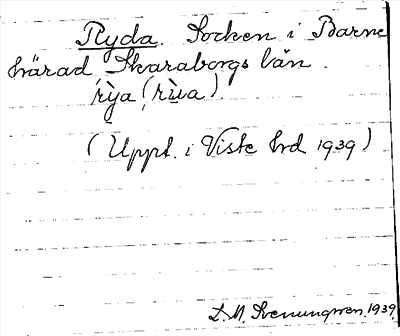 Ryda. Socken i Barne
härad Skaraborgs län.
rỳa (rùa).
(Uppt. i Viste hrd 1939)
D. M. Svenungsson, 1939